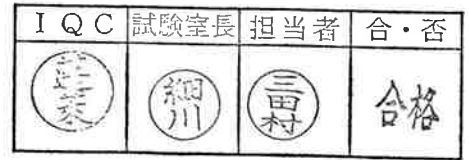 IQC 試験室長 担当者 合・否
細川 三田村 合格